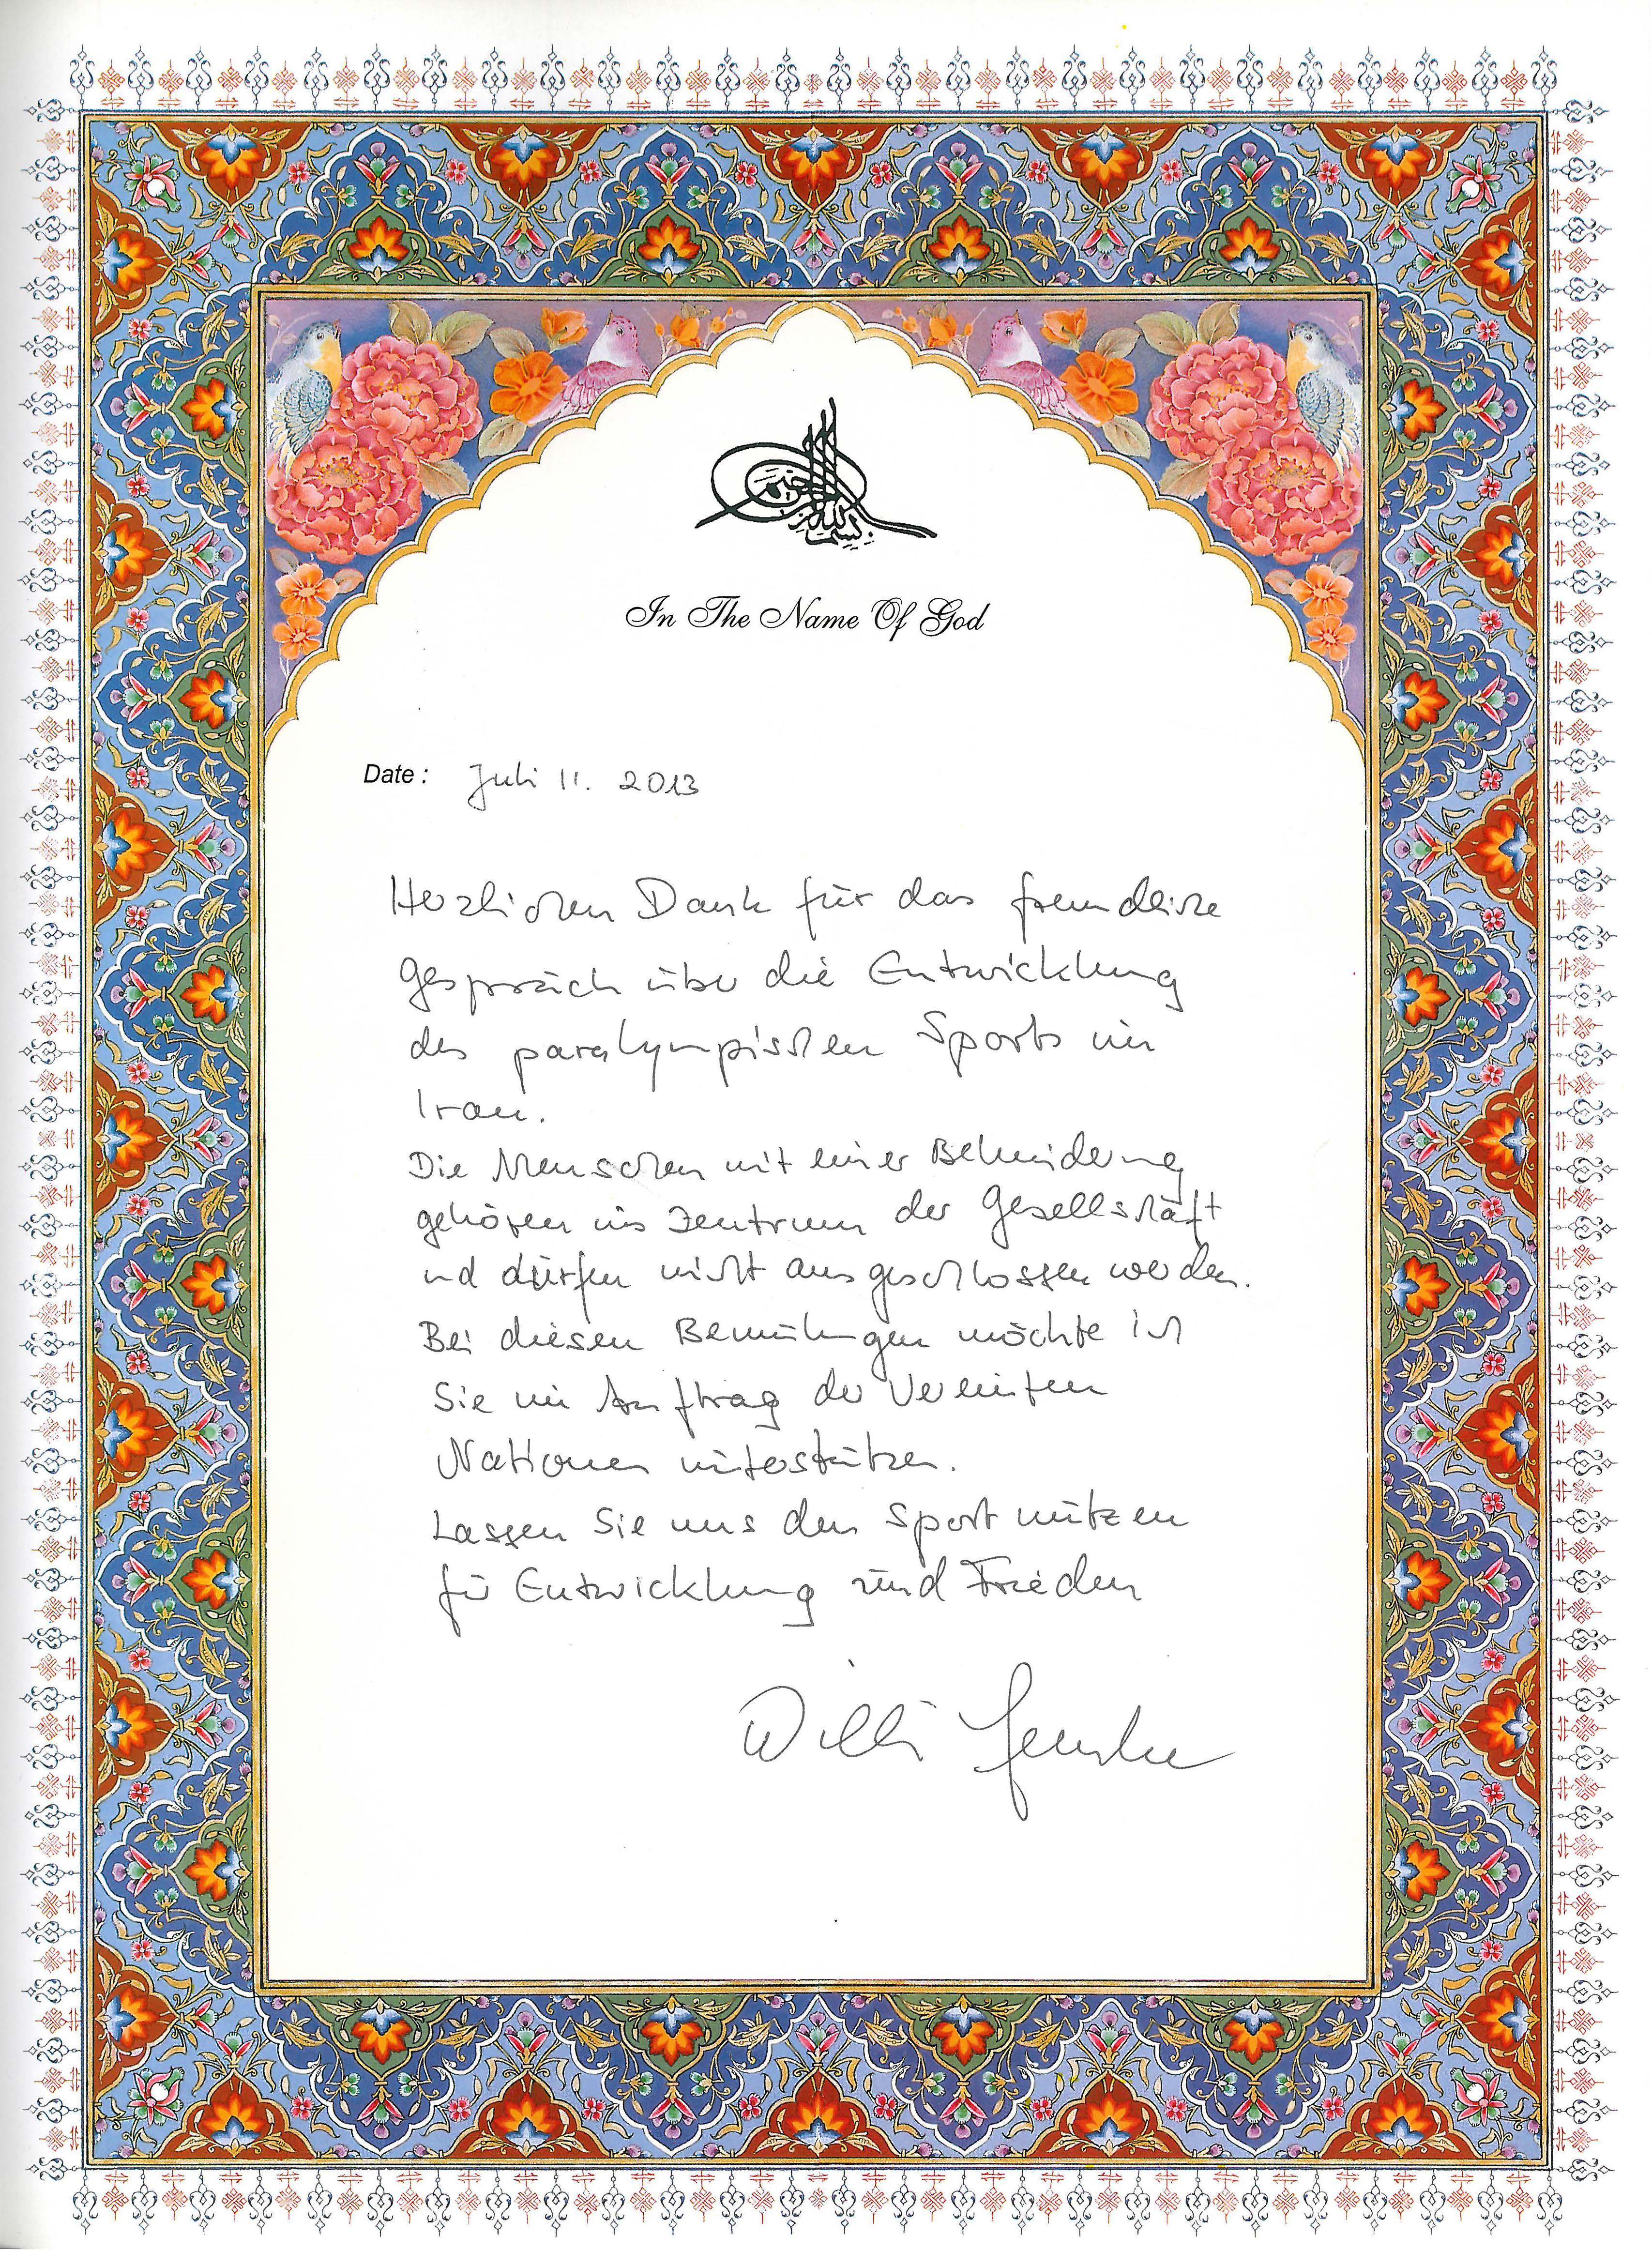 بسم الله الرحمن الرحیم
In The Name Of God
Date : Juli 11. 2013
Herzlichen Dank für das freundliche
Gespräch über die Entwicklung
des paralympischen Sports im
Iran.
Die Menschen mit einer Behinderung
gehören ins Zentrum der Gesellschaft
und dürfen nicht ausgeschlossen werden.
Bei diesen Bemühungen möchte ich
Sie im Auftrag der Vereinten
Nationen unterstützen.
Lassen Sie uns den Sport nützen
für Entwicklung und Frieden
Willi Lemke